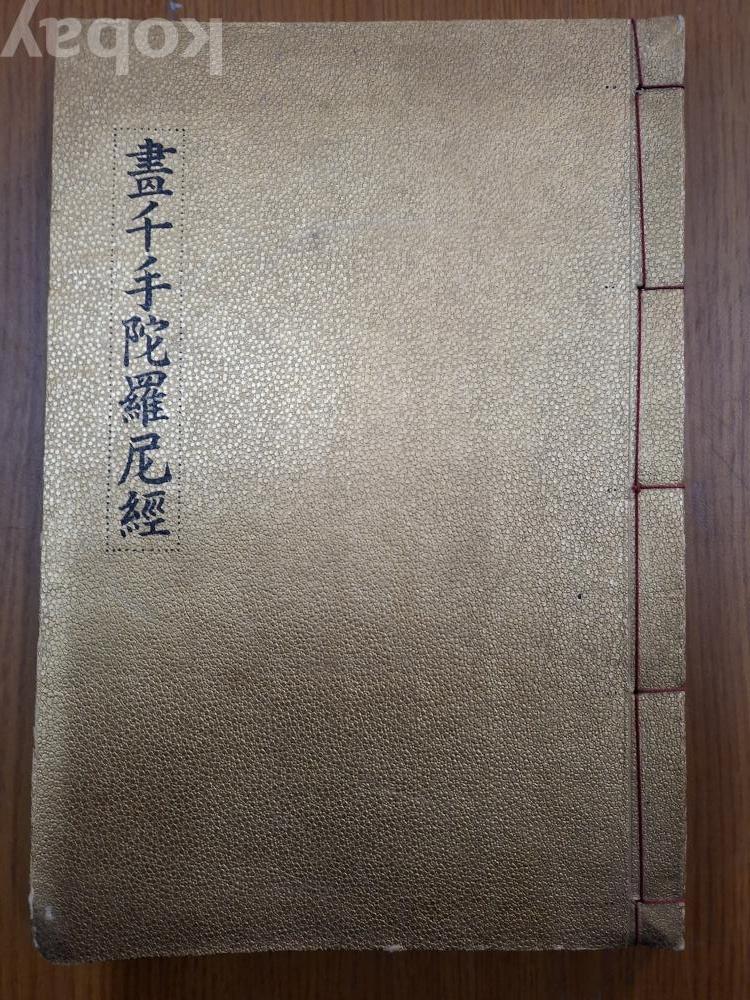 畫千手陀羅尼經
kobay